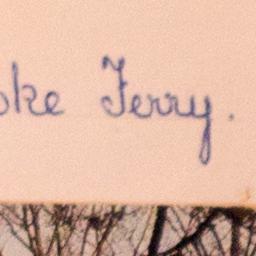 oke Ferry.